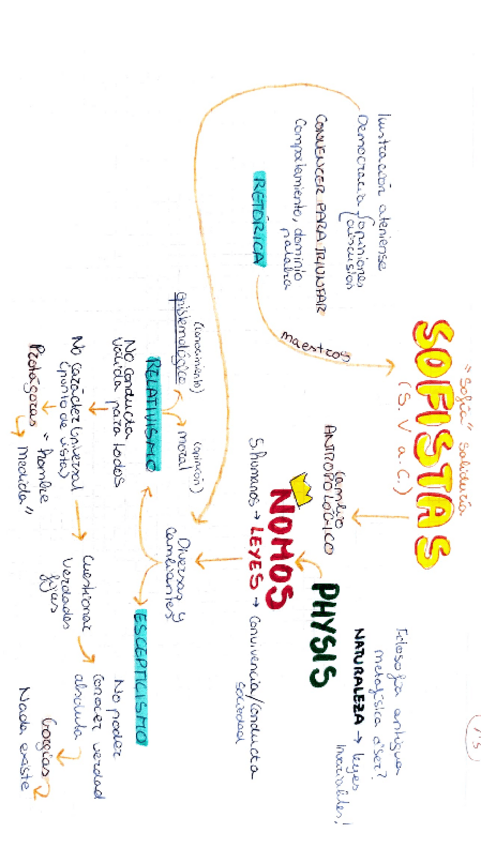 "Sofía" sabiduría
SOFISTAS
(S. V a.C.)
Ilustración ateniense
Democracia / opiniones
discusión
CONVENCER PARA TRIUNFAR
Comportamiento, dominio
palabra
RETÓRICA
maestros
Filosofía antigua
metafísica ¿ser?
NATURALEZA → leyes
invariables!
PHYSIS
Cambio
ANTROPOLÓGICO
NOMOS
S. humanos → LEYES → Convivencia/conducta
sociedad
Diversas y
cambiantes
(conocimiento)
epistemológico
(opinión)
moral
RELATIVISMO
No conducta
válida para todos
No carácter universal
(punto de vista)
Protágoras → "hombre
medida"
Cuestionar
verdades
fijas
ESCEPTICISMO
No poder
conocer verdad
absoluta
Gorgias
Nada existe